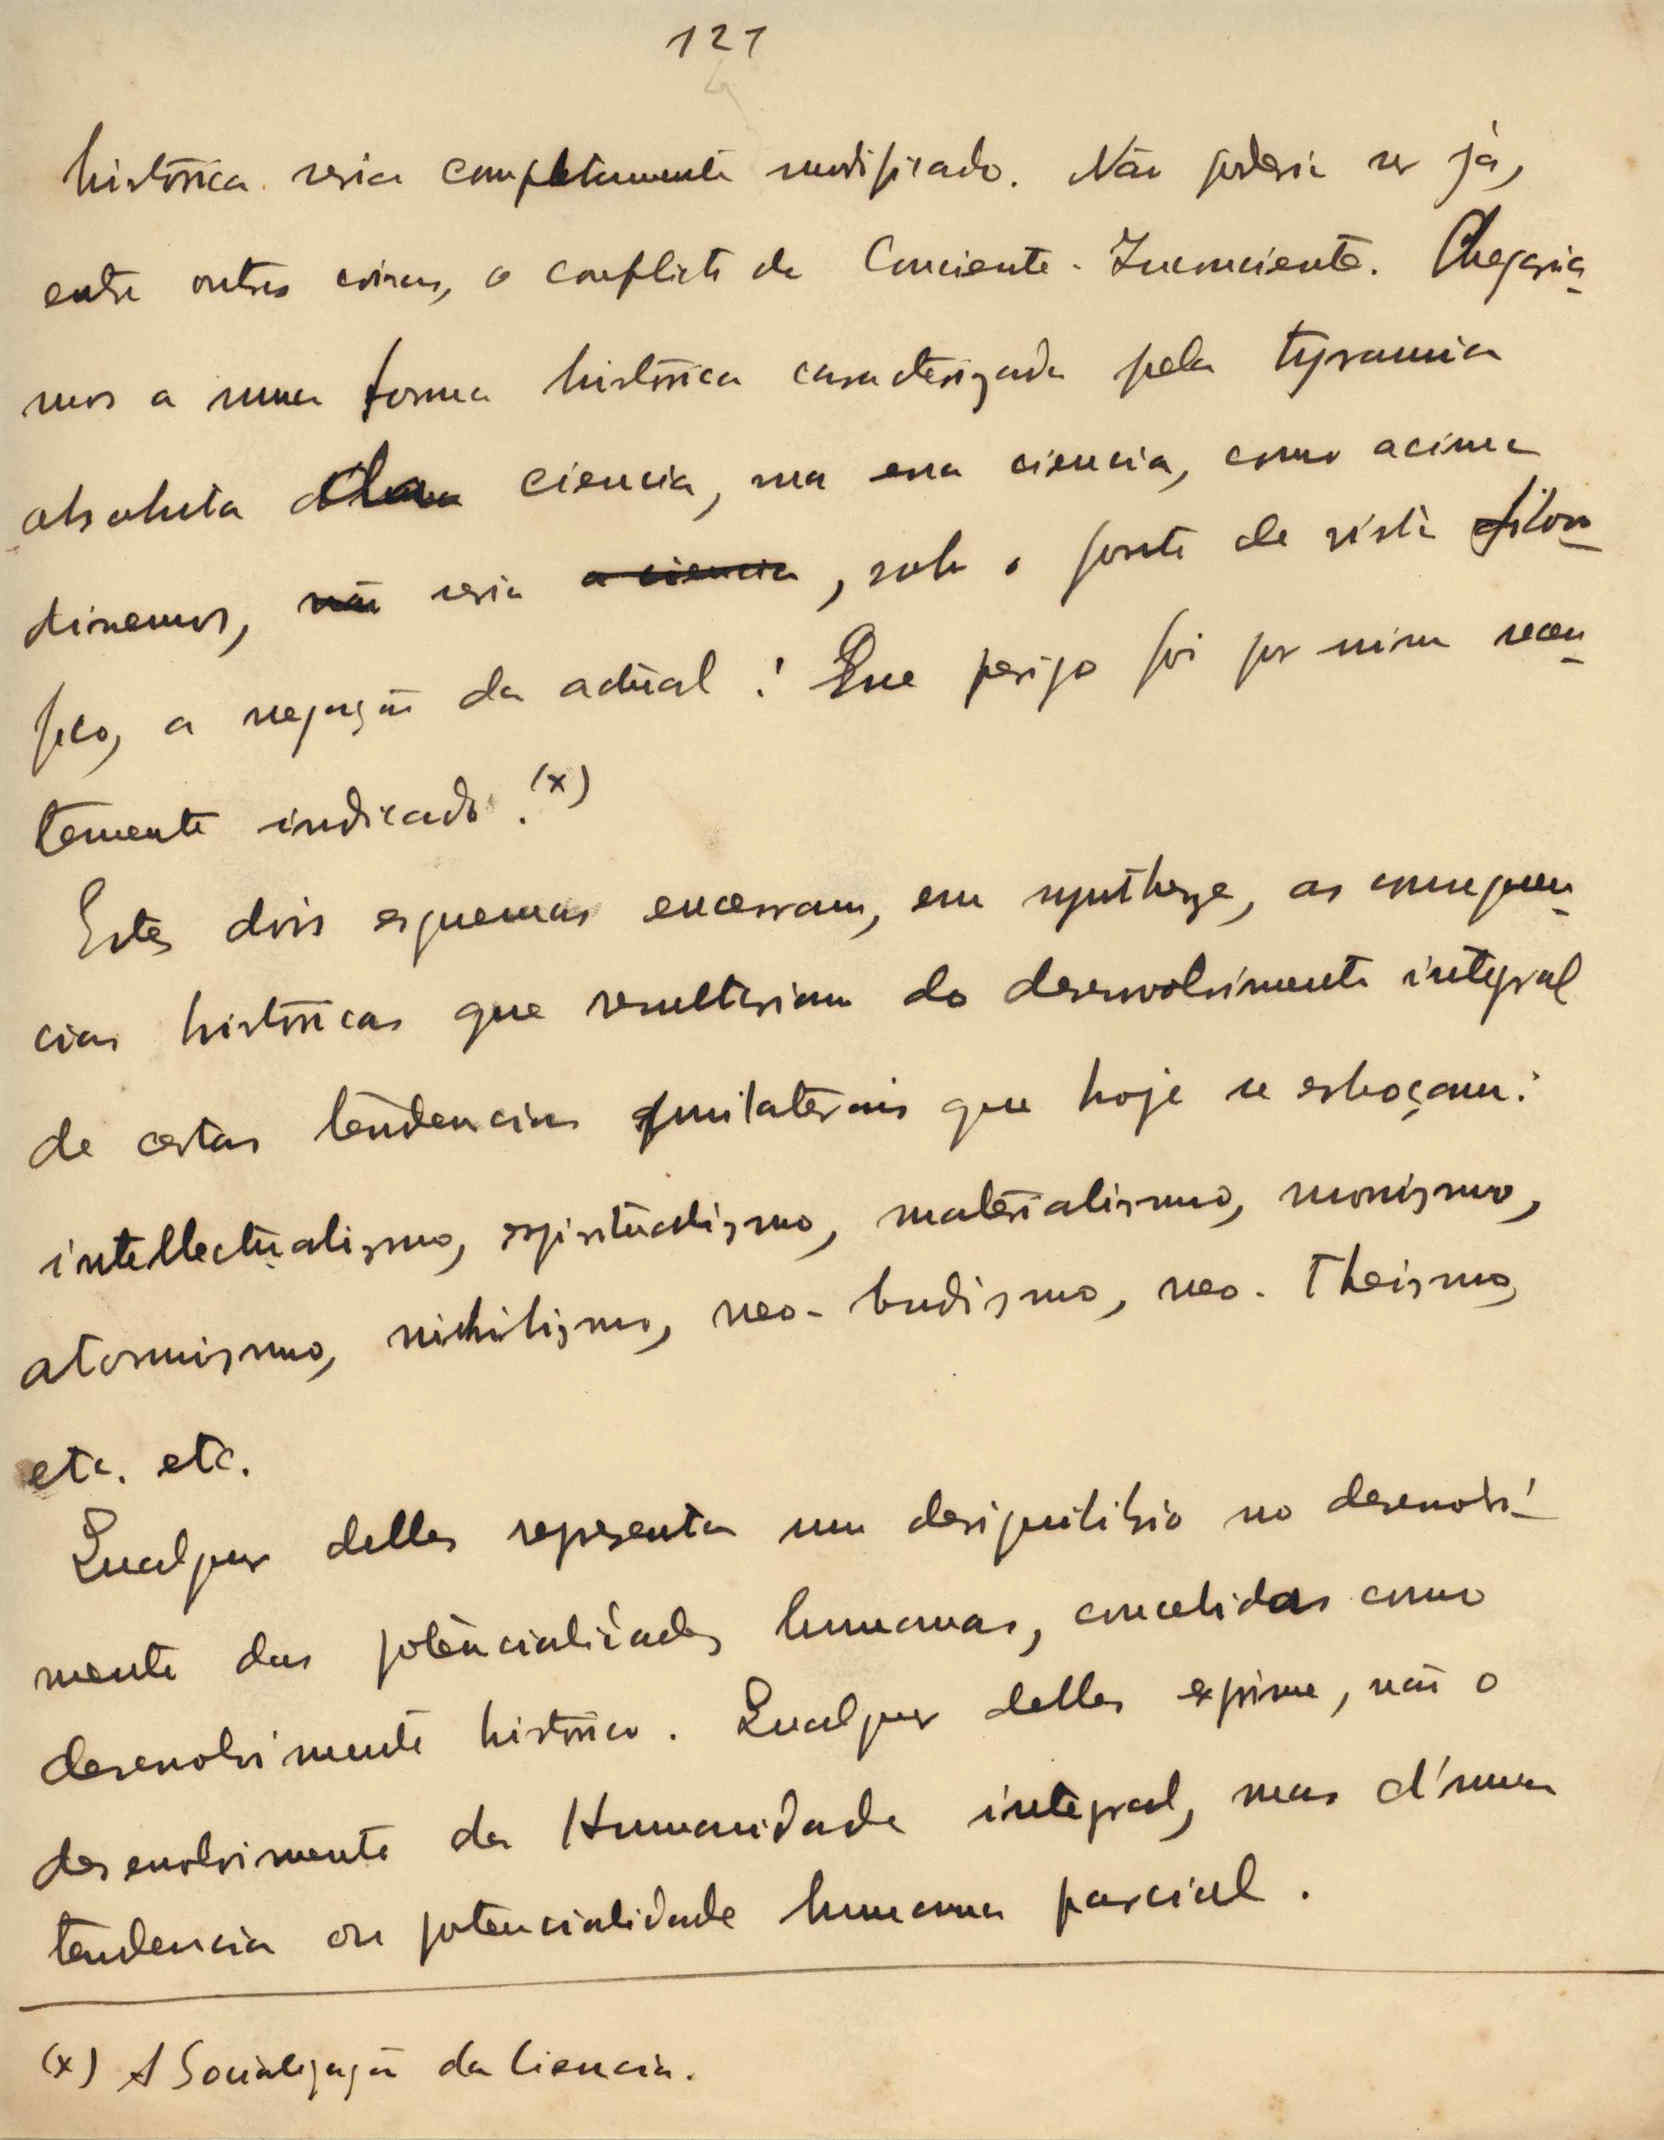 121
historica seria completamente modificado. Não poderia ser já,
entre outras coisas, o conflicto do Conciente-Inconciente. Chegaria-
mos a uma forma historica caracterizada pela tyrannia
absoluta da ciencia, mas essa ciencia, como acima
dissemos, não seria a ciencia, sob o ponto de vista filoso-
fico, a negação da actual! Que perigo foi por mim recen-
temente indicado.(x)
Estes dois esquemas encerram, em synthese, as consequen-
cias historicas que resultariam do desenvolvimento integral
de certas tendencias unilaterais que hoje se esboçam:
intellectualismo, espiritualismo, materialismo, monismo,
atomismo, nichilismo, neo-budismo, neo-Theismo,
etc. etc.
Qualquer delles representa um desiquilibrio no desenvolvi-
mento das potencialidades humanas, concebidas como
desenvolvimento historico. Qualquer delles exprime, não o
desenvolvimento da Humanidade integral, mas d'uma
tendencia ou potencialidade humana parcial.
(x) A Socialização da Ciencia.